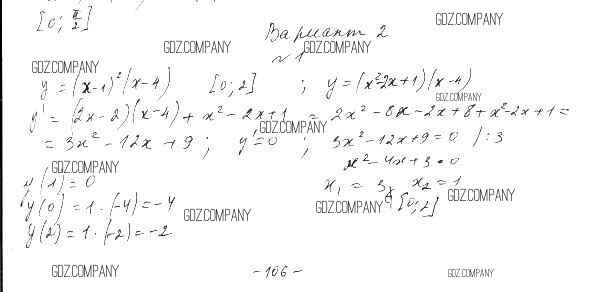 [0; π/2]
GDZ.COMPANY
Вариант 2
GDZ.COMPANY GDZ.COMPANY
№1
GDZ.COMPANY
y = (x-1)²(x-4) [0;2] ; y = (x²-2x+1)(x-4)
GDZ.COMPANY
y' = (2x-2)(x-4) + x²-2x+1 = 2x²-8x-2x+8+x²-2x+1 =
GDZ.COMPANY
= 3x²-12x+9 ; y'=0 ; 3x²-12x+9=0 /:3
x²-4x+3=0
GDZ.COMPANY
y(1) = 0 x₁ = 3 ∉ [0;2] x₂ = 1
GDZ.COMPANY
y(0) = 1·(-4) = -4
GDZ.COMPANY GDZ.COMPANY
y(2) = 1·(-2) = -2
GDZ.COMPANY -106- GDZ.COMPANY